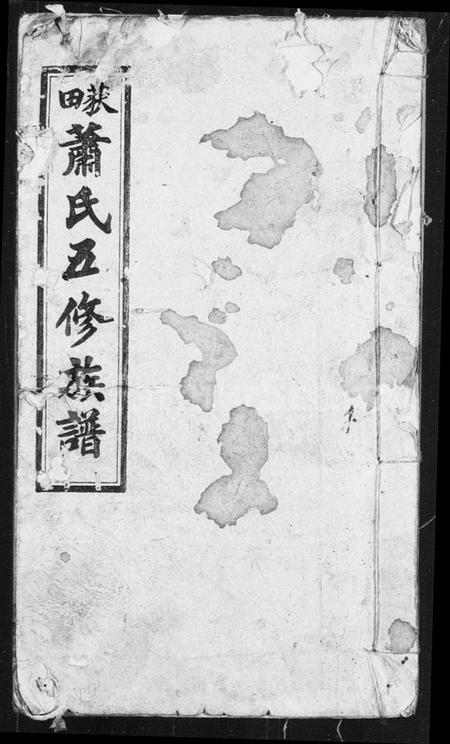 荻田
蕭氏五修族譜